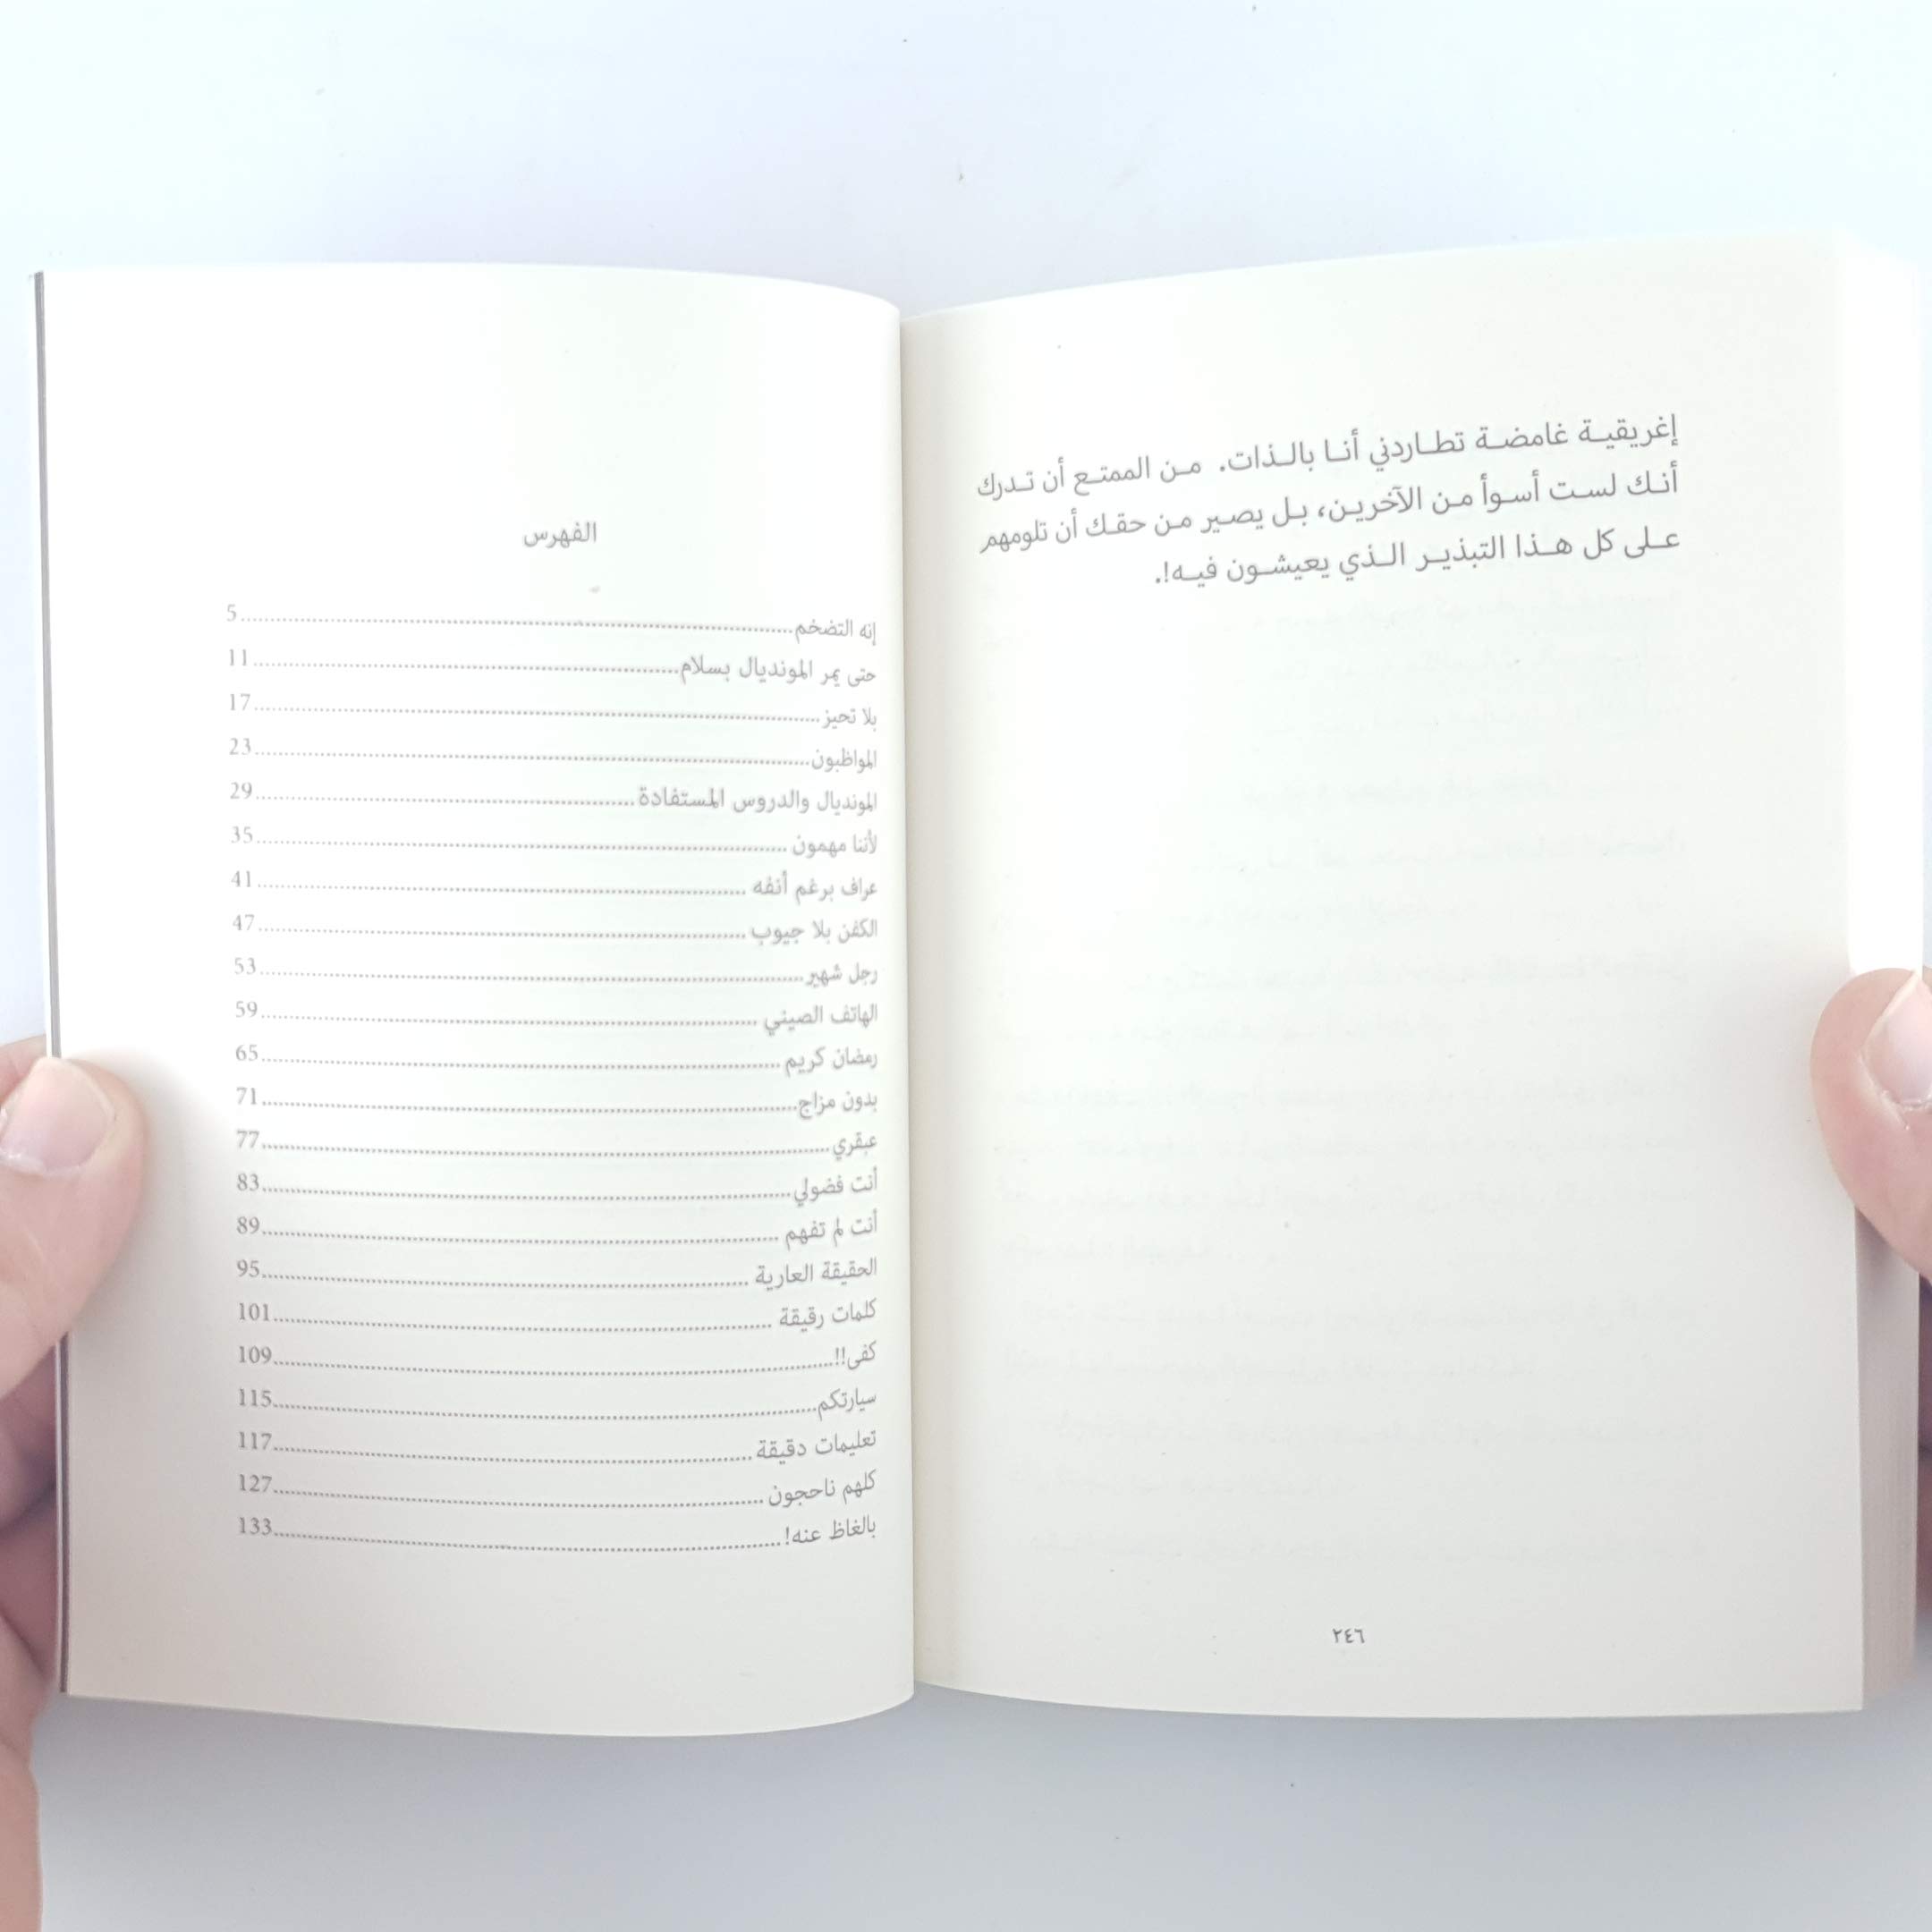 إغريقية غامضة تطاردني أنا بالذات. من الممتع أن تدرك
أنك لست أسوأ من الآخرين، بل يصير من حقك أن تلومهم
على كل هذا التبذير الذي يعيشون فيه!.
٢٤٦
الفهرس
إنه التضخم......5
حتى يمر المونديال بسلام......11
بلا تحيز......17
المواظبون......23
المونديال والدروس المستفادة......29
لأننا مهمون......35
عراف برغم أنفه......41
الكفن بلا جيوب......47
رجل شهير......53
الهاتف الصيني......59
رمضان كريم......65
بدون مزاج......71
عبقري......77
أنت فضولي......83
أنت لم تفهم......89
الحقيقة العارية......95
كلمات رقيقة......101
كفى!!......109
سيارتكم......115
تعليمات دقيقة......117
كلهم ناحجون......127
بالغاظ عنه!......133